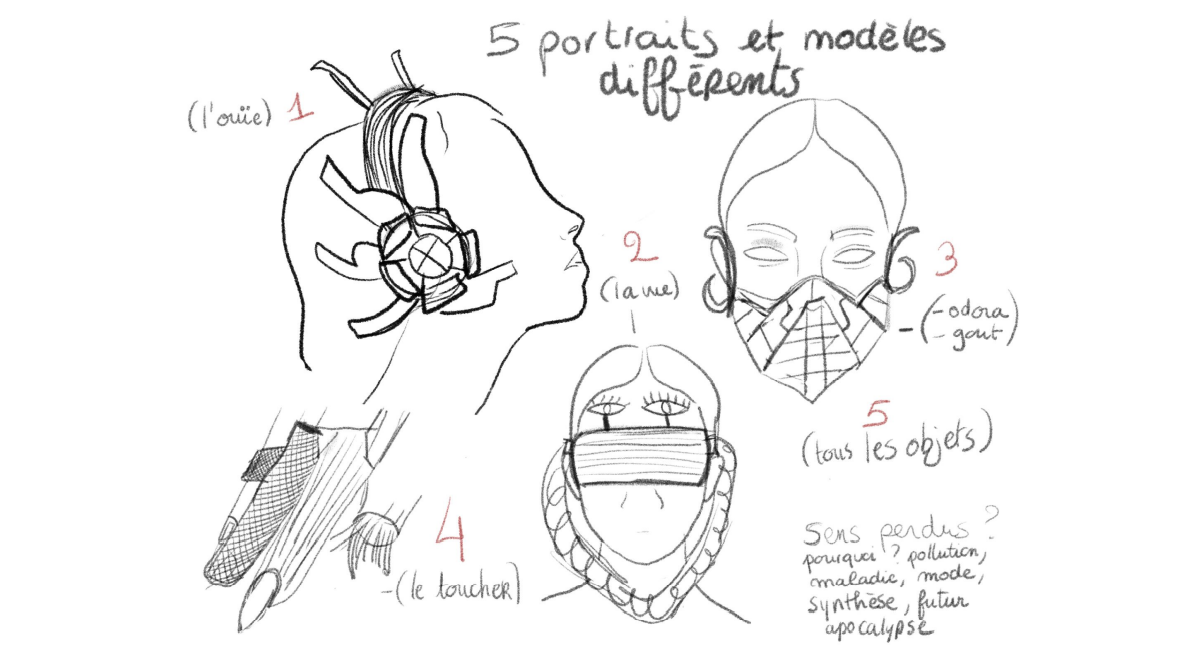 5 portraits et modèles
différents
(l'ouïe) 1
2
(la vue)
3
-(-odora
- gout)
4
-(le toucher)
5
(tous les objets)
Sens perdus ?
pourquoi ? pollution,
maladie, mode,
synthèse, futur
apocalypse